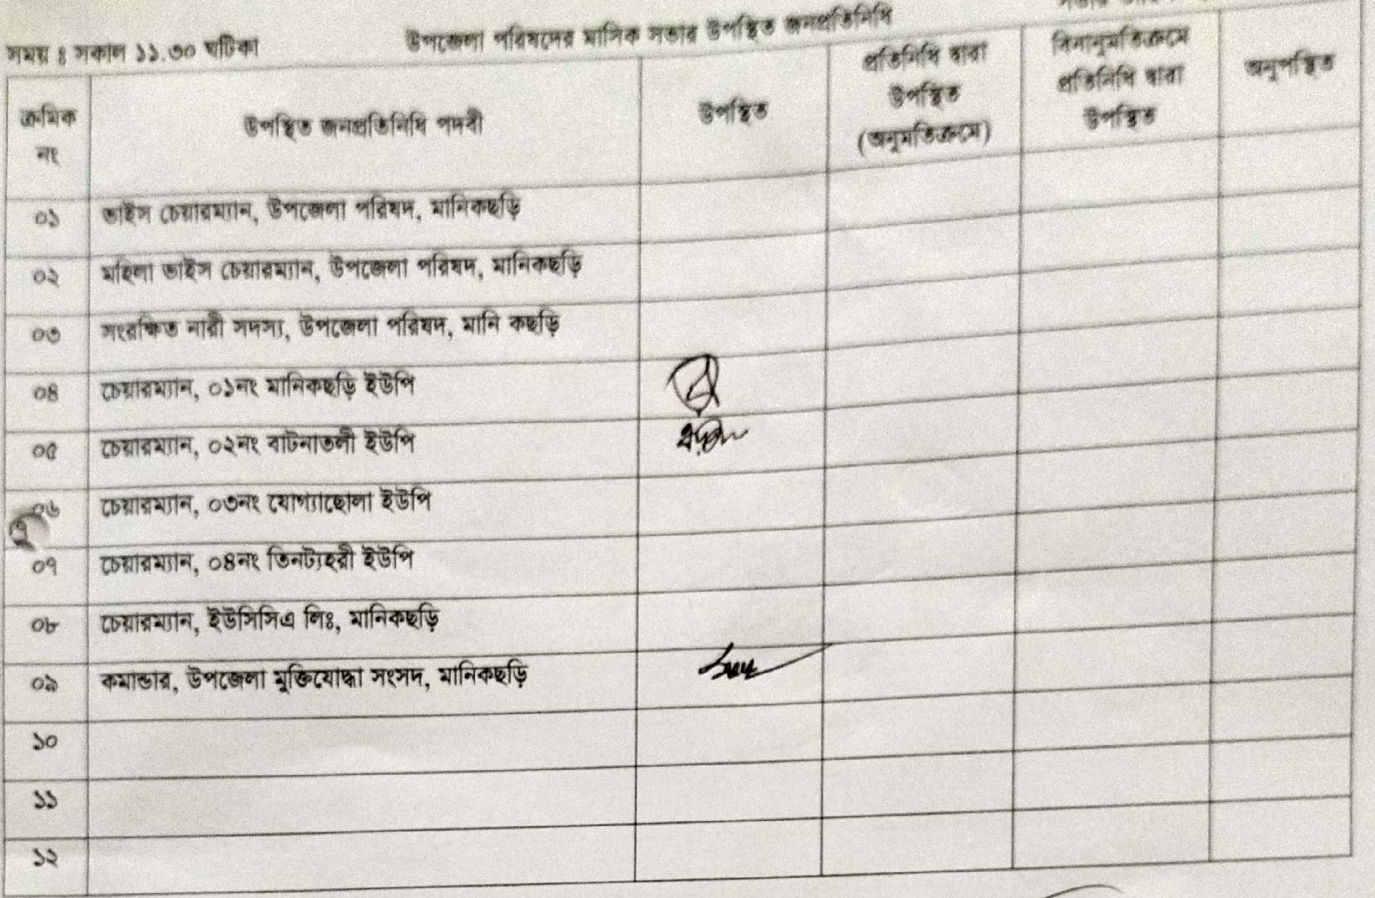 সময় ঃ সকাল ১১.৩০ ঘটিকা
উপজেলা পরিষদের মাসিক সভার উপস্থিত জনপ্রতিনিধি
ক্রমিক নং
উপস্থিত জনপ্রতিনিধি পদবী
উপস্থিত
প্রতিনিধি দ্বারা
উপস্থিত
(অনুমতিক্রমে)
বিনানুমতিক্রমে
প্রতিনিধি দ্বারা
উপস্থিত
অনুপস্থিত
০১ ভাইস চেয়ারম্যান, উপজেলা পরিষদ, মানিকছড়ি
০২ মহিলা ভাইস চেয়ারম্যান, উপজেলা পরিষদ, মানিকছড়ি
০৩ সংরক্ষিত নারী সদস্য, উপজেলা পরিষদ, মানি কছড়ি
০৪ চেয়ারম্যান, ০১নং মানিকছড়ি ইউপি
০৫ চেয়ারম্যান, ০২নং বাটনাতলী ইউপি
০৬ চেয়ারম্যান, ০৩নং যোগ্যাছোলা ইউপি
০৭ চেয়ারম্যান, ০৪নং তিনট্যহরী ইউপি
০৮ চেয়ারম্যান, ইউসিসিএ লিঃ, মানিকছড়ি
০৯ কমান্ডার, উপজেলা মুক্তিযোদ্ধা সংসদ, মানিকছড়ি
১০
১১
১২